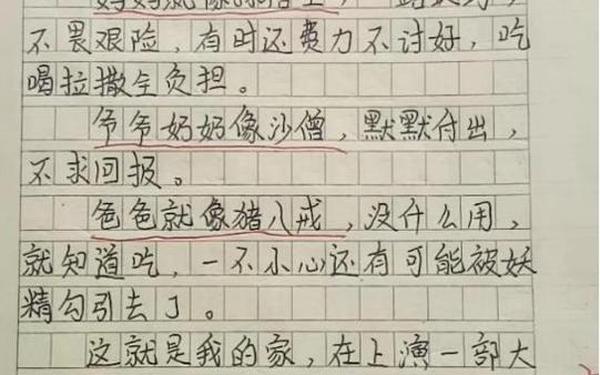 妈妈就像孙悟空，
不畏艰险，有时还费力不讨好，吃
喝拉撒全负担。
爷爷奶奶像沙僧，默默付出，
不求回报。
爸爸就像猪八戒，没什么用，
就知道吃，一不小心还有可能被妖
精勾引去了。
这就是我的家，在上演一部大